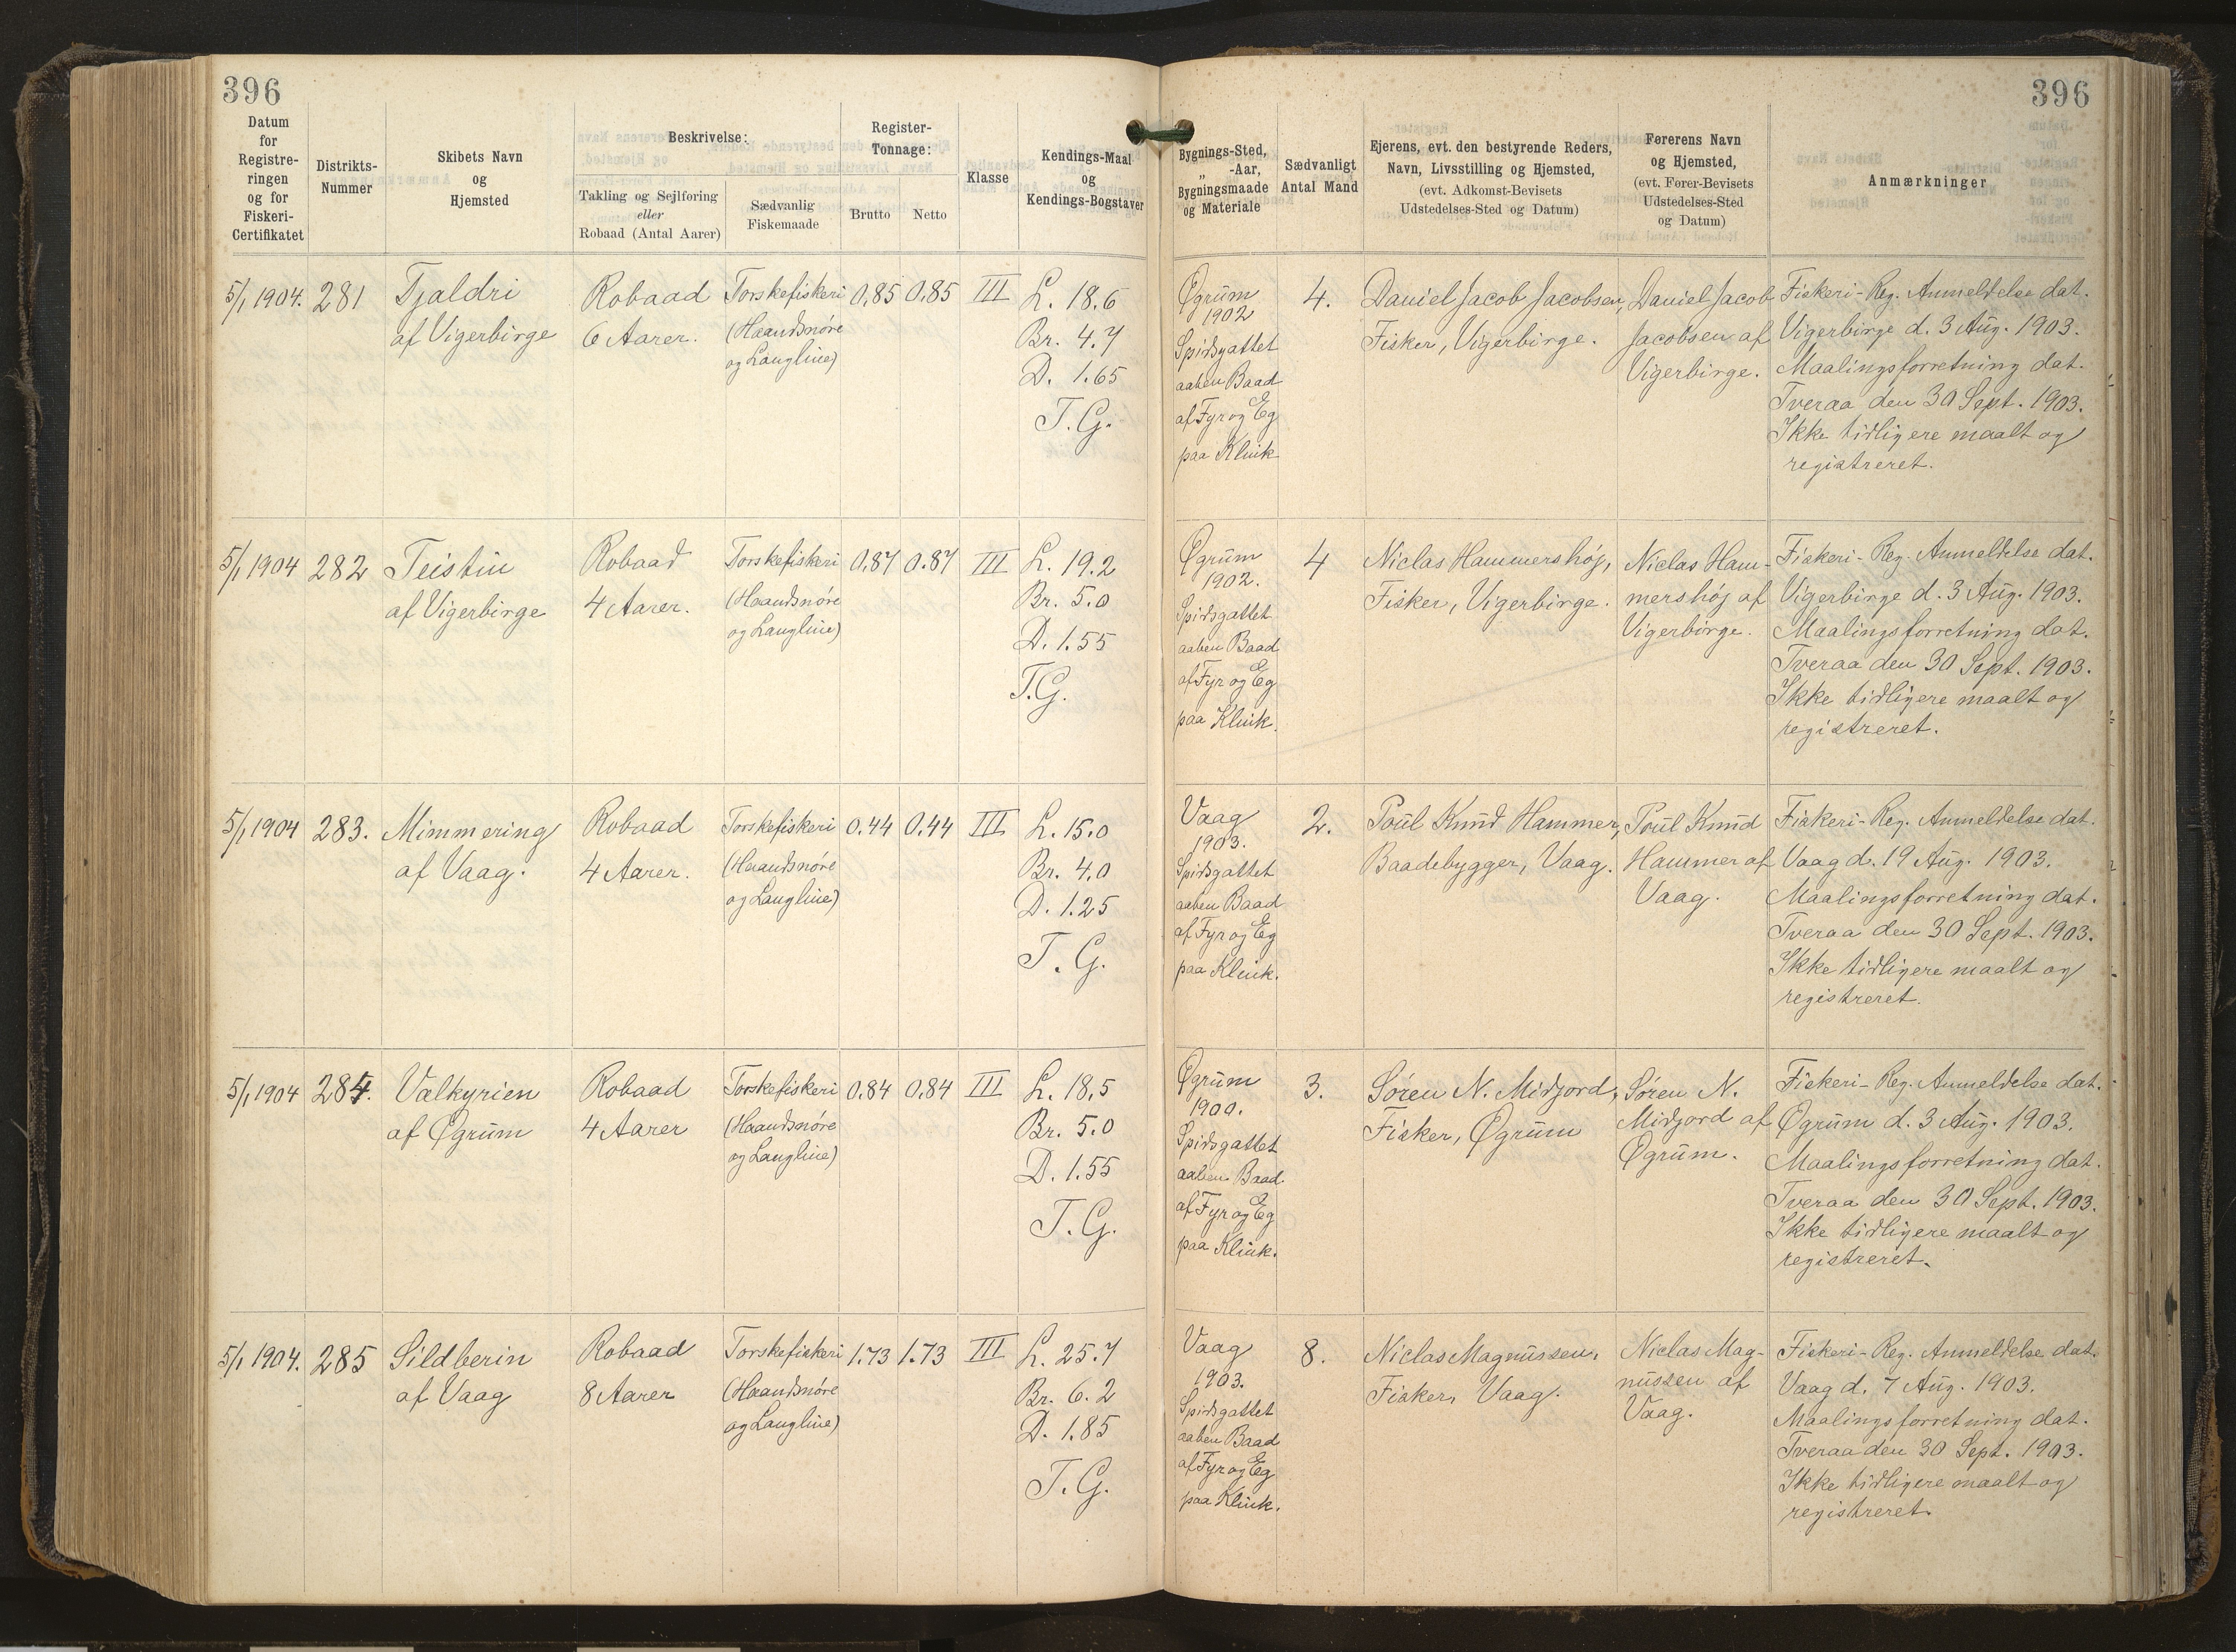 396
396
Datum
for
Registre-
ringen
og for
Fiskeri-
Certifikatet
Distrikts-
Nummer
Skibets Navn
og
Hjemsted
Beskrivelse:
Takling og Sejlføring
eller
Robaad (Antal Aarer)
Sædvanlig
Fiskemaade
Register-
Tonnage:
Brutto
Netto
Klasse
Kendings-Maal
og
Kendings-Bogstaver
Bygnings-Sted,
„ -Aar,
Bygningsmaade
og Materiale
Sædvanligt
Antal Mand
Ejerens, evt. den bestyrende Reders,
Navn, Livsstilling og Hjemsted,
(evt. Adkomst-Bevisets
Udstedelses-Sted og Datum)
Førerens Navn
og Hjemsted,
(evt. Fører-Bevisets
Udstedelses-Sted
og Datum)
Anmærkninger
5/1 1904.
281
Tjaldri
af Vigerbirge
Robaad
6 Aarer.
Torskefiskeri
(Haandsnøre
og Langline)
0,85
0,85
III
L. 18.6
Br. 4.7
D. 1.65
T.G.
Øgrum
1902
Spidsgattet
aaben Baad
af Fyr og Eg
paa Klink
4.
Daniel Jacob Jacobsen,
Fisker, Vigerbirge.
Daniel Jacob
Jacobsen af
Vigerbirge.
Fiskeri-Reg. Anmeldelse dat.
Vigerbirge d. 3 Aug. 1903.
Maalingsforretning dat.
Tveraa den 30 Sept. 1903.
Ikke tidligere maalt og
registreret.
5/1 1904
282
Teistin
af Vigerbirge
Robaad
4 Aarer.
Torskefiskeri
(Haandsnøre
og Langline)
0,87
0.87
III
L. 19.2
Br. 5.0
D. 1.55
T.G.
Øgrum
1902.
Spidsgattet
aaben Baad
af Fyr og Eg
paa Klink.
4
Niclas Hammershøj,
Fisker, Vigerbirge.
Niclas Ham-
mershøj af
Vigerbirge.
Fiskeri-Reg. Anmeldelse dat.
Vigerbirge d. 3 Aug. 1903.
Maalingsforretning dat.
Tveraa den 30 Sept. 1903.
Ikke tidligere maalt og
registreret.
5/1 1904
283.
Mimmering
af Vaag.
Robaad
4 Aarer.
Torskefiskeri
(Haandsnøre
og Langline)
0.44
0,44
III
L. 15.0
Br. 4.0
D. 1.25
T.G.
Vaag
1903.
Spidsgattet
aaben Baad
af Fyr og Eg
paa Klink.
2.
Poul Knud Hammer,
Baadebygger, Vaag.
Poul Knud
Hammer af
Vaag.
Fiskeri-Reg. Anmeldelse dat.
Vaag d. 19 Aug. 1903.
Maalingsforretning dat.
Tveraa den 30 Sept. 1903.
Ikke tidligere maalt og
registreret.
5/1 1904
284.
Valkyrien
af Øgrum
Robaad
4 Aarer
Torskefiskeri
(Haandsnøre
og Langline)
0.84
0,84
III
L. 18,5
Br. 5.0
D. 1.55
T.G.
Øgrum
1900.
Spidsgattet
aaben Baad.
af Fyr og Eg
paa Klink.
3.
Søren N. Midjord,
Fisker, Øgrum
Søren N.
Midjord af
Øgrum.
Fiskeri-Reg. Anmeldelse dat.
Øgrum d. 3 Aug. 1903.
Maalingsforretning dat.
Tveraa den 30 Sept. 1903.
Ikke tidligere maalt og
registreret.
5/1 1904.
285
Sildberin
af Vaag
Robaad
8 Aarer
Torskefiskeri
(Haandsnøre
og Langline)
1.73
1.73
III
L. 25.7
Br. 6.2
D. 1.85
T.G.
Vaag
1903.
Spidsgattet
aaben Baad
af Fyr og Eg
paa Klink.
8.
Niclas Magnussen,
Fisker, Vaag.
Niclas Mag-
nussen af
Vaag.
Fiskeri-Reg. Anmeldelse dat.
Vaag d. 7 Aug. 1903.
Maalingsforretning dat.
Tveraa den 30 Sept. 1903.
Ikke tidligere maalt og
registreret.